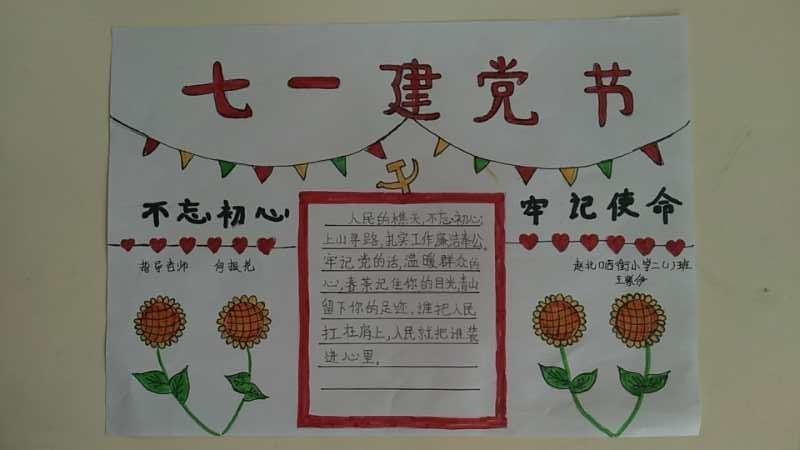 七一建党节
不忘初心
牢记使命
指导老师 何振光
人民的樵夫,不忘初心,
上山寻路,扎实工作廉洁奉公。
牢记党的话,温暖群众的
心,春茶记住你的目光,青山
留下你的足迹,谁把人民
扛在肩上,人民就把谁装
进心里。
赵北口西街小学二(1)班